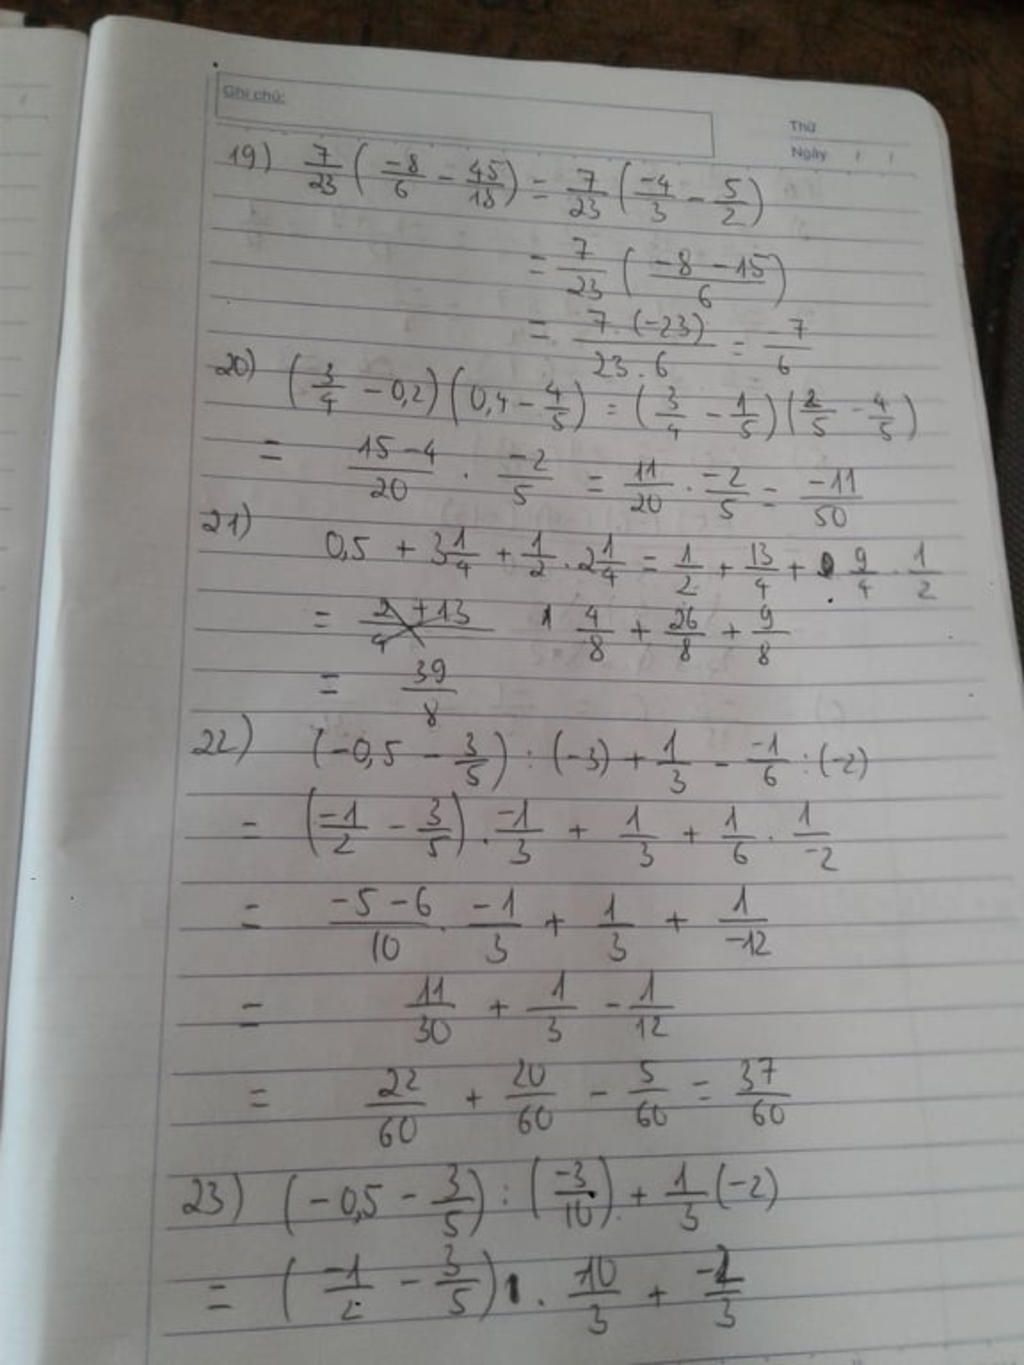 Ghi chú:
Thứ
Ngày / /
19) 7/23 (-8/6 - 45/18) = 7/23 (-4/3 - 5/2)
= 7/23 ((-8 - 15)/6)
= 7.(-23)/23.6 = -7/6
20) (3/4 - 0,2)(0,4 - 4/5) = (3/4 - 1/5)(2/5 - 4/5)
= (15-4)/20 . -2/5 = 11/20 . -2/5 = -11/50
21) 0,5 + 3 1/4 + 1/2 . 2 1/4 = 1/2 + 13/4 + 9/4 . 1/2
= 4/8 + 26/8 + 9/8
= 39/8
22) (-0,5 - 3/5) : (-3) + 1/3 - -1/6 : (-2)
= (-1/2 - 3/5) . -1/3 + 1/3 + 1/6 . 1/-2
= (-5-6)/10 . -1/3 + 1/3 + 1/-12
= 11/30 + 1/3 - 1/12
= 22/60 + 20/60 - 5/60 = 37/60
23) (-0,5 - 3/5) : (-3/10) + 1/3 (-2)
= (-1/2 - 3/5) . 10/3 + -2/3